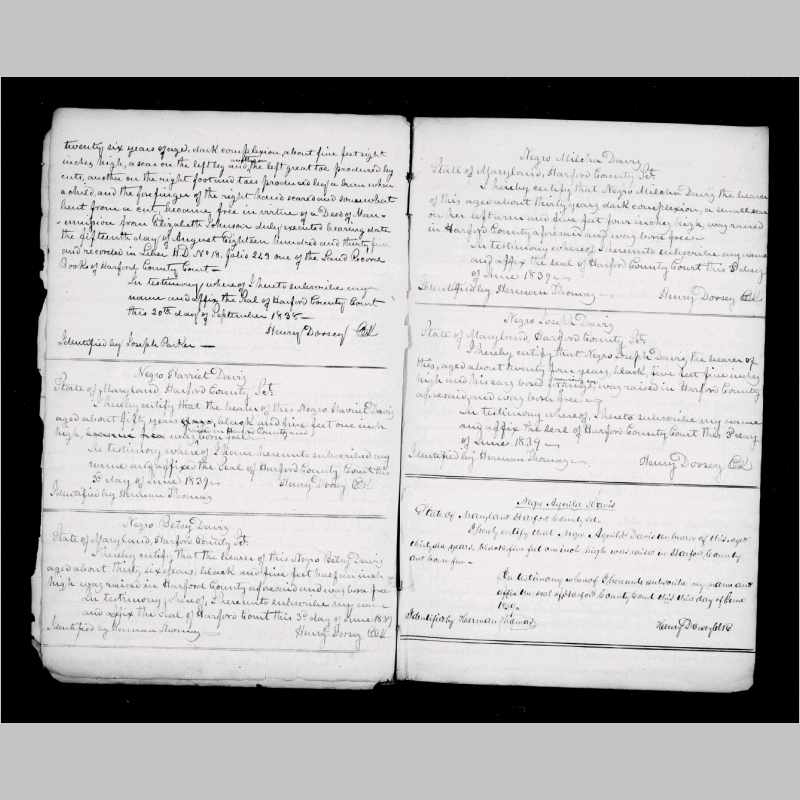 twenty six years of age, dark complexion, about five feet eight
inches high, a scar on the left leg and another the left great toe produced by
cuts, another on the right foot and toes produced by a burn when
a child, and the forefinger of the right hand scared and somewhat
bent from a cut, became free in virtue of a Deed of Man-
-umission from Elizabeth Johnson duly executed bearing date
the fifteenth day of August Eighteen hundred and thirty five
and recorded in Liber H.D. No 18. folio 249 one of the Land Record
Books of Harford County Court—
In testimony whereof I hereto subscribe my
name and affix the Seal of Harford County Court
this 20th day of September 1838—
Henry Dorsey Clk
Identified by Joseph Parker—
Negro Harriet Davis
State of Maryland, Harford County Sct.
I hereby certify that the bearer of this Negro Harriet Davis
aged about fifty years black and five feet one inch
high, raised in Harford County and
was born free—
In testimony whereof I here hereunto subscribed my
name and affix the Seal of Harford County Court this
3d day of June 1839— Henry Dorsey Clk
Identified by Herman Thomas
Negro Betsy Davis
State of Maryland, Harford County Sct.
I hereby certify that the bearer of this Negro Betsy Davis
aged about thirty six years, black and five feet two & an inch
high was raised in Harford County aforesaid and was born free
In testimony whereof, I hereunto subscribe my name
and affix the Seal of Harford Court this 3d day of June 1839
Identified by Herman Thomas— Henry Dorsey Clk
Negro Milcha Davis
State of Maryland, Harford County Sct.
I hereby certify that Negro Milcha Davis the bearer
of this aged about thirty years dark complexion, a small scar
on her left arm and five feet four inches high, was raised
in Harford County aforesaid and was born free—
In testimony whereof, I hereunto subscribe my name
and affix the seal of Harford County Court this 3d day
of June 1839—
Identified by Herman Thomas— Henry Dorsey Clk
Negro Joseph Davis
State of Maryland, Harford County Sct.
I hereby certify that Negro Joseph Davis, the bearer of
this, aged about twenty four years, black, five feet five inches
high has his ears bored was raised in Harford County
aforesaid, and was born free—
In testimony whereof, I hereto subscribe my name
and affix the seal of Harford County Court this 3d day
of June 1839—
Identified by Herman Thomas— Henry Dorsey Clk
Negro Aquilla Davis
State of Maryland Harford County, Sct.
I hereby certify that Negro Aquilla Davis the bearer of this, aged
thirty six years, black & five feet one inch high was raised in Harford County
and born free—
In testimony whereof I hereunto subscribe my name and
affix the seal of Harford County Court this third day of June
1839.
Identified by Herman Thomas Henry Dorsey Clk